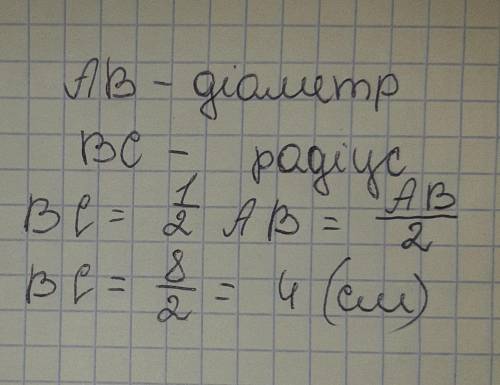 AB - діаметр
BC - радіус
BC = 1/2 AB = AB/2
BC = 8/2 = 4 (см)